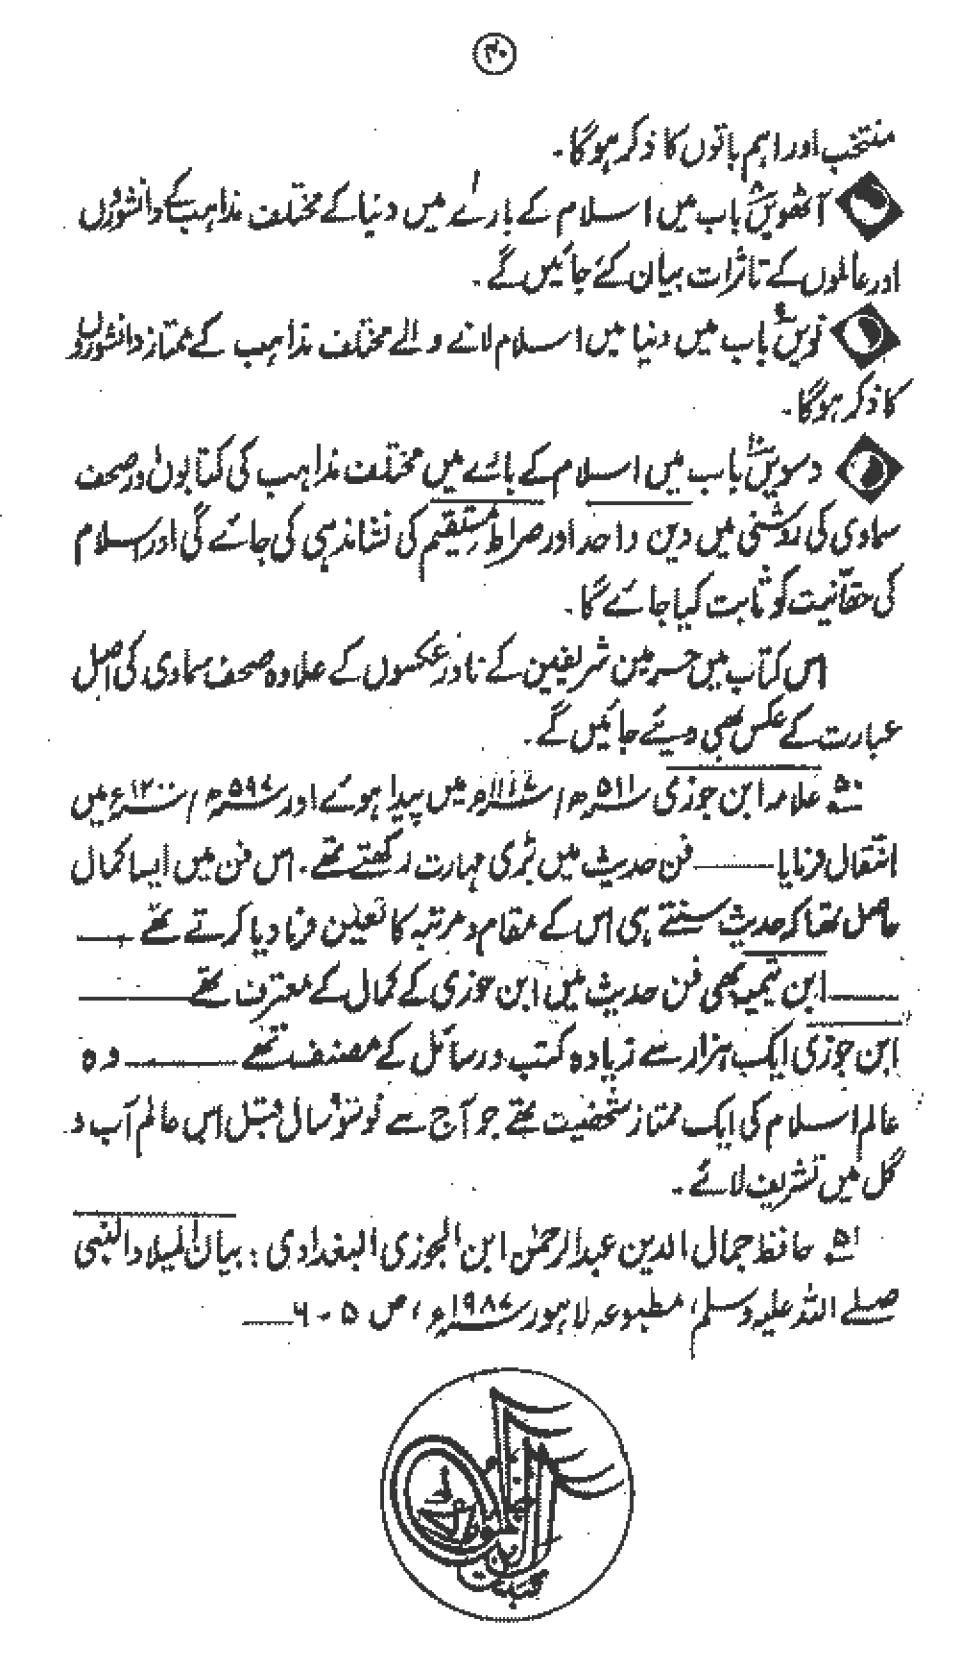 ۴۰
منتخب اور اہم باتوں کا ذکر ہوگا۔
آٹھویں باب میں اسلام کے بارے میں دنیا کے مختلف مذاہب کے دانشوروں
اور عالموں کے تاثرات بیان کئے جائیں گے۔
نویں باب میں دنیا میں اسلام لانے والے مختلف مذاہب کے ممتاز دانشوروں
کا ذکر ہوگا۔
دسویں باب میں اسلام کے بارے میں مختلف مذاہب کی کتابوں اور صحف
سماوی کی روشنی میں دین واحد اور صراط مستقیم کی نشاندہی کی جائے گی اور اسلام
کی حقانیت کو ثابت کیا جائے گا۔
اس کتاب میں حرمین شریفین کے نادر عکسوں کے علاوہ صحف سماوی کی اصل
عبارت کے عکس بھی دیئے جائیں گے۔
۵۰ علامہ ابن جوزی ۵۱۱ھ/۱۱۱۷ء میں پیدا ہوئے اور ۵۹۷ھ/۱۲۰۰ء میں
انتقال فرمایا ــــ فن حدیث میں بڑی مہارت رکھتے تھے۔ اس فن میں ایسا کمال
حاصل تھا کہ حدیث سنتے ہی اس کے مقام و مرتبہ کا تعین فرما دیا کرتے تھے ــــ
ــــ ابن تیمیہ بھی فن حدیث میں ابن جوزی کے کمال کے معترف تھے ــــ
ابن جوزی ایک ہزار سے زیادہ کتب و رسائل کے مصنف تھے ــــ وہ
عالم اسلام کی ایک ممتاز شخصیت تھے جو آج سے نو سو سال قبل اس عالم آب و
گل میں تشریف لائے۔
۵۱ حافظ جمال الدین عبدالرحمٰن ابن الجوزی البغدادی : بیان المیلاد النبی
صلے اللہ علیہ وسلم، مطبوعہ لاہور ۱۹۸۷ء، ص ۵-۶ ــــ